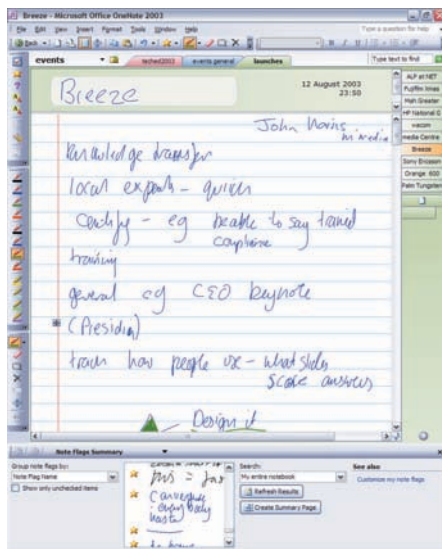 Breeze - Microsoft Office OneNote 2003
File Edit View Insert Format Tools Window Help
Type a question for help
Back
events
teched2003
events general
launches
Type text to find
Breeze
12 August 2003
23:50
John
in media
knowledge transfer
local experts - quick
certify - eg be able to say trained
compliance
training
general eg CEO keynote
(Presidia)
track how people use - what slides
score answers
Design it
ALP at NET
Fujifilm
HP National G
wacom
media Centre
Breeze
Sony Ericsson
Orange 600
Palm Tungsten
Note Flags Summary
Group note flags by:
Note Flag Name
Show only unchecked items
Search:
My entire notebook
Refresh Results
Create Summary Page
See also
Customize my note flags